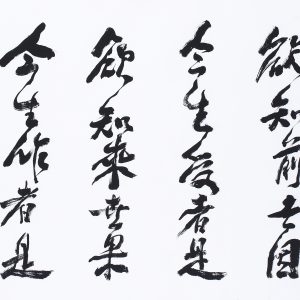 欲知前世因
今生受者是
欲知來世果
今生作者是